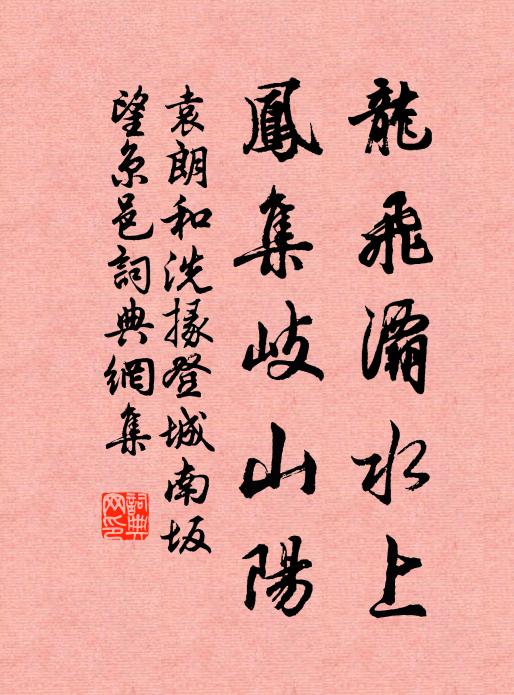 龍飛灞水上
鳳集岐山陽
袁朗和洗掾登城南坂
望京邑詞典網集
詞典網印